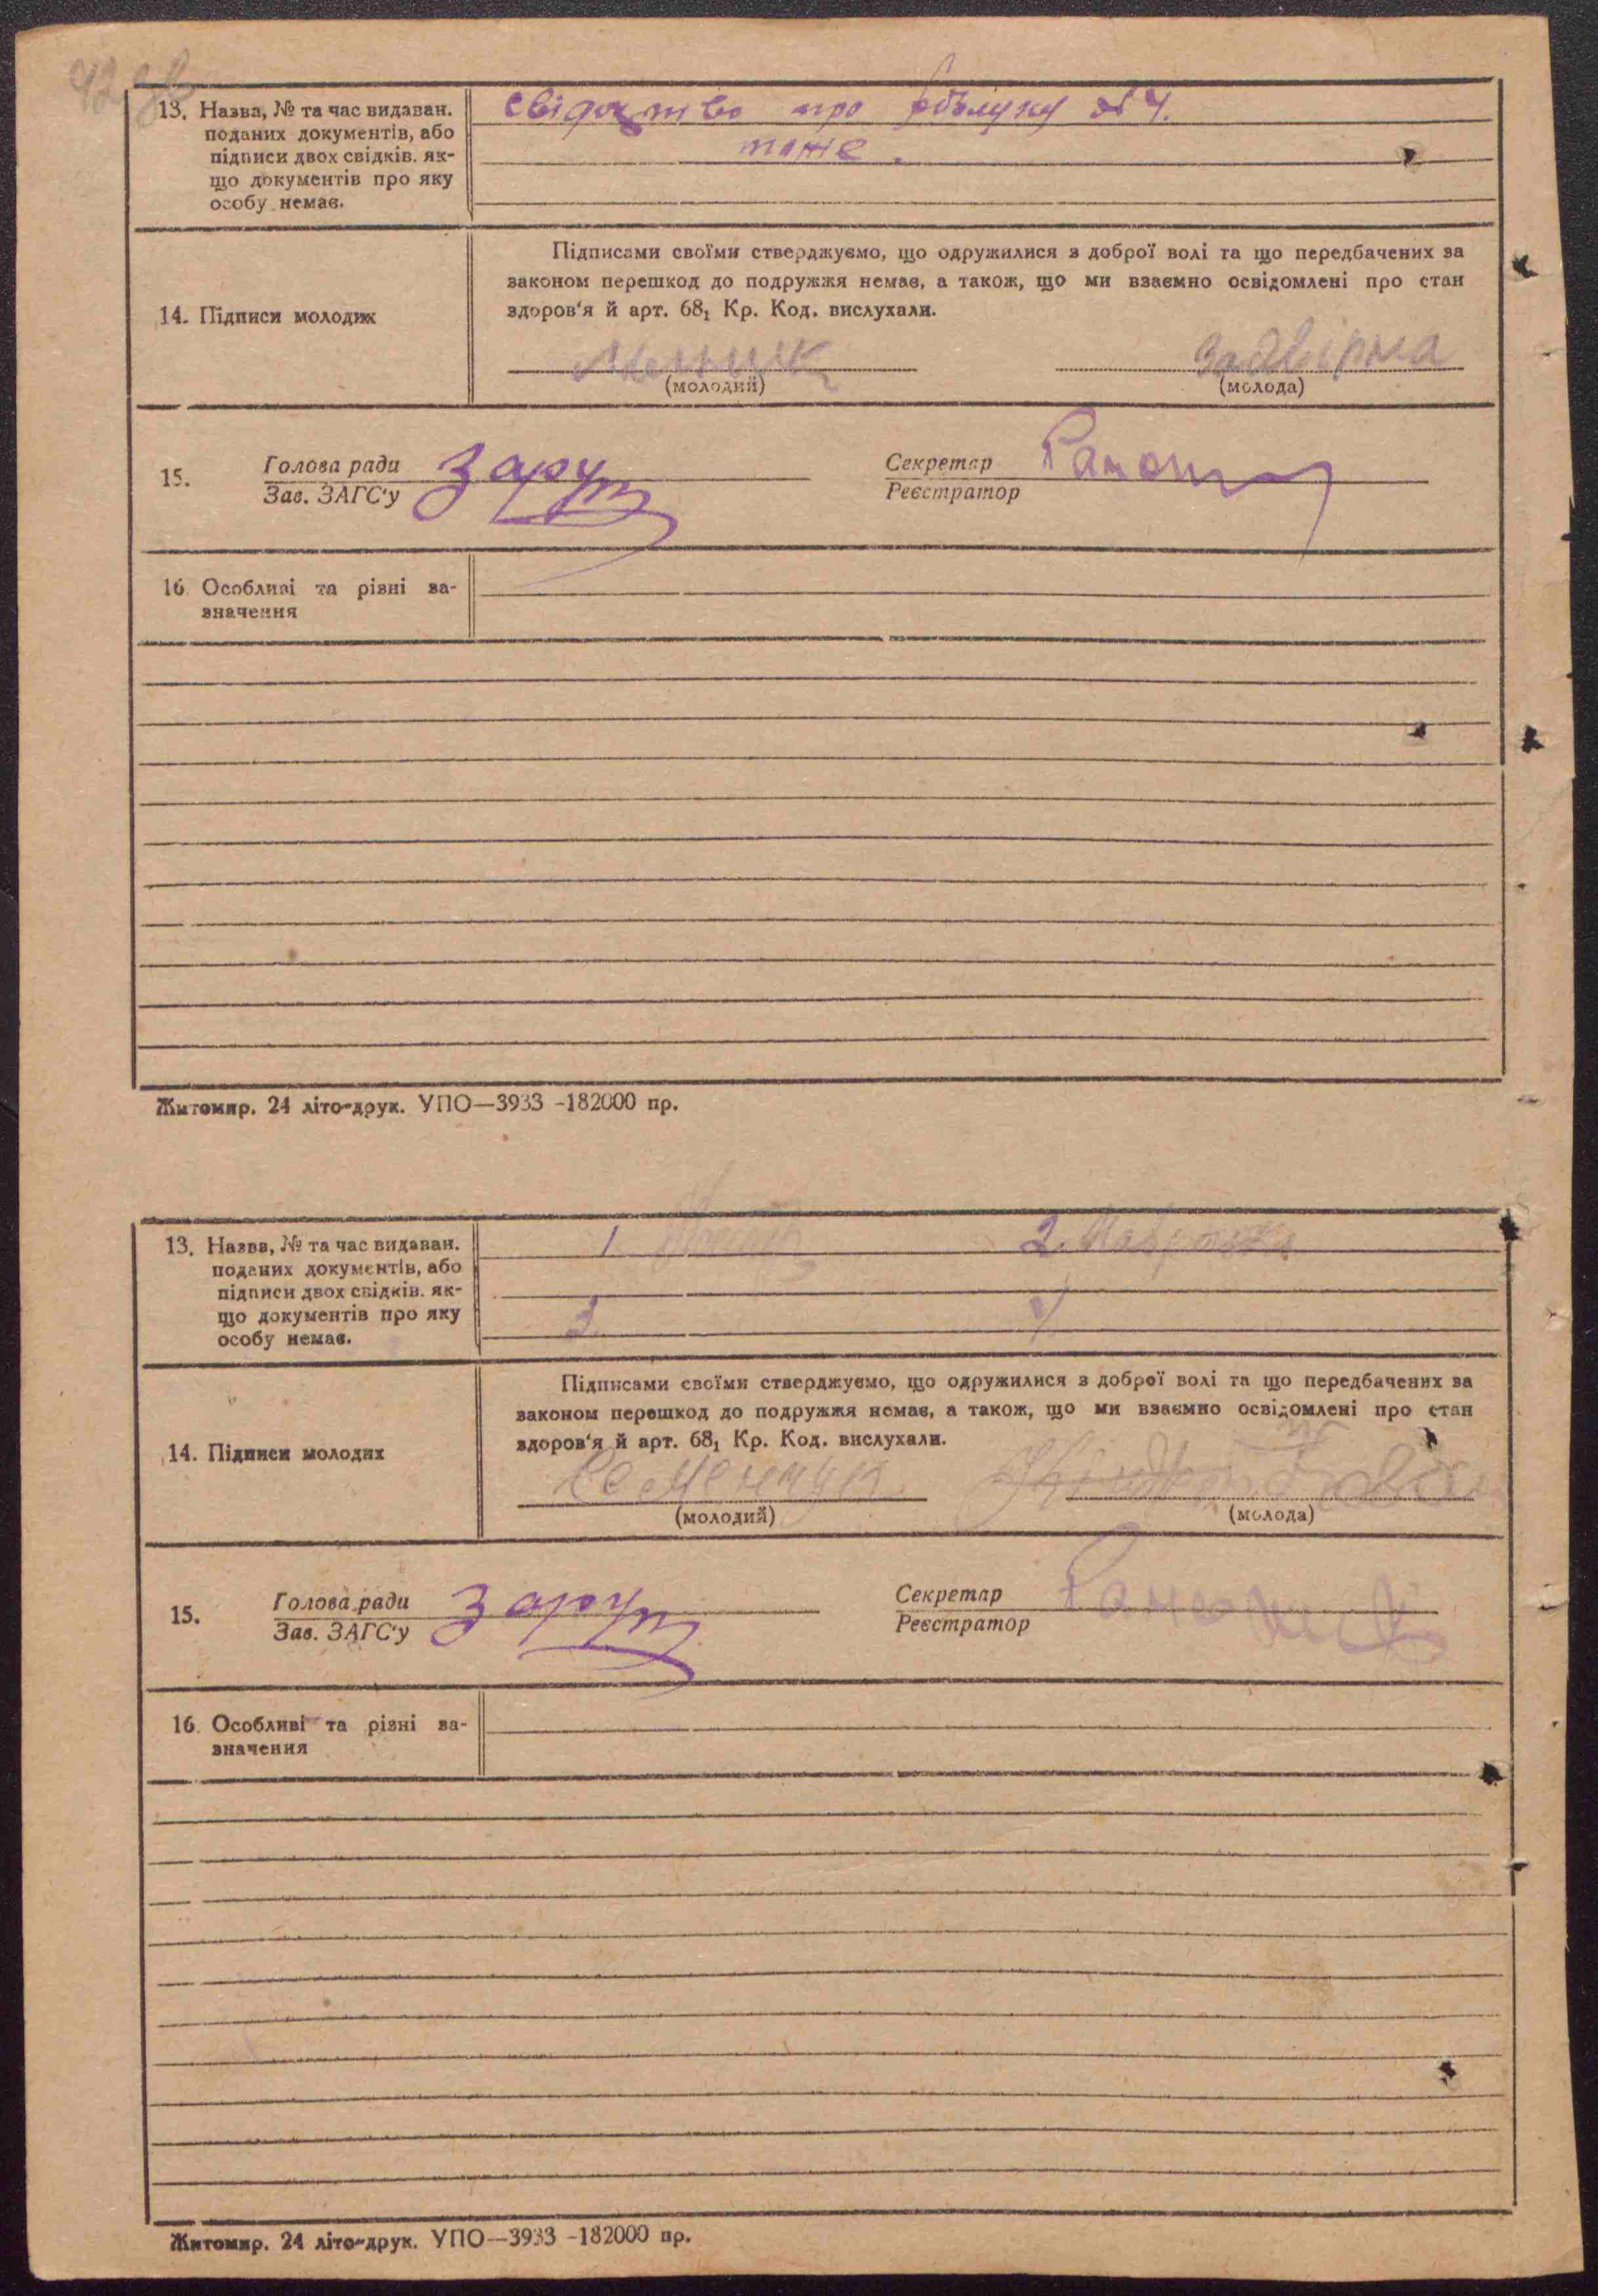 13. Назва, № та час видаван.
поданих документів, або
підписи двох свідків. як-
що документів про яку
особу немає.
свідоцтво про розлуку № 4.
тоже.
14. Підписи молодих
Підписами своїми стверджуємо, що одружилися з доброї волі та що передбачених за
законом перешкод до подружжя немає, а також, що ми взаємно освідомлені про стан
здоров'я й арт. 68₁ Кр. Код. вислухали.
Мельник
(молодий)
Задвірна
(молода)
15.
Голова ради
Зав. ЗАГС'у
Заруд
Секретар
Реєстратор
16. Особливі та різні за-
значення
Житомир. 24 літо-друк. УПО—3933 -182000 пр.
13. Назва, № та час видаван.
поданих документів, або
підписи двох свідків. як-
що документів про яку
особу немає.
1.
2.
3.
4.
14. Підписи молодих
Підписами своїми стверджуємо, що одружилися з доброї волі та що передбачених за
законом перешкод до подружжя немає, а також, що ми взаємно освідомлені про стан
здоров'я й арт. 68₁ Кр. Код. вислухали.
Семенчук
(молодий)
(молода)
15.
Голова ради
Зав. ЗАГС'у
Заруд
Секретар
Реєстратор
16. Особливі та різні за-
значення
Житомир. 24 літо-друк. УПО—3933 -182000 пр.